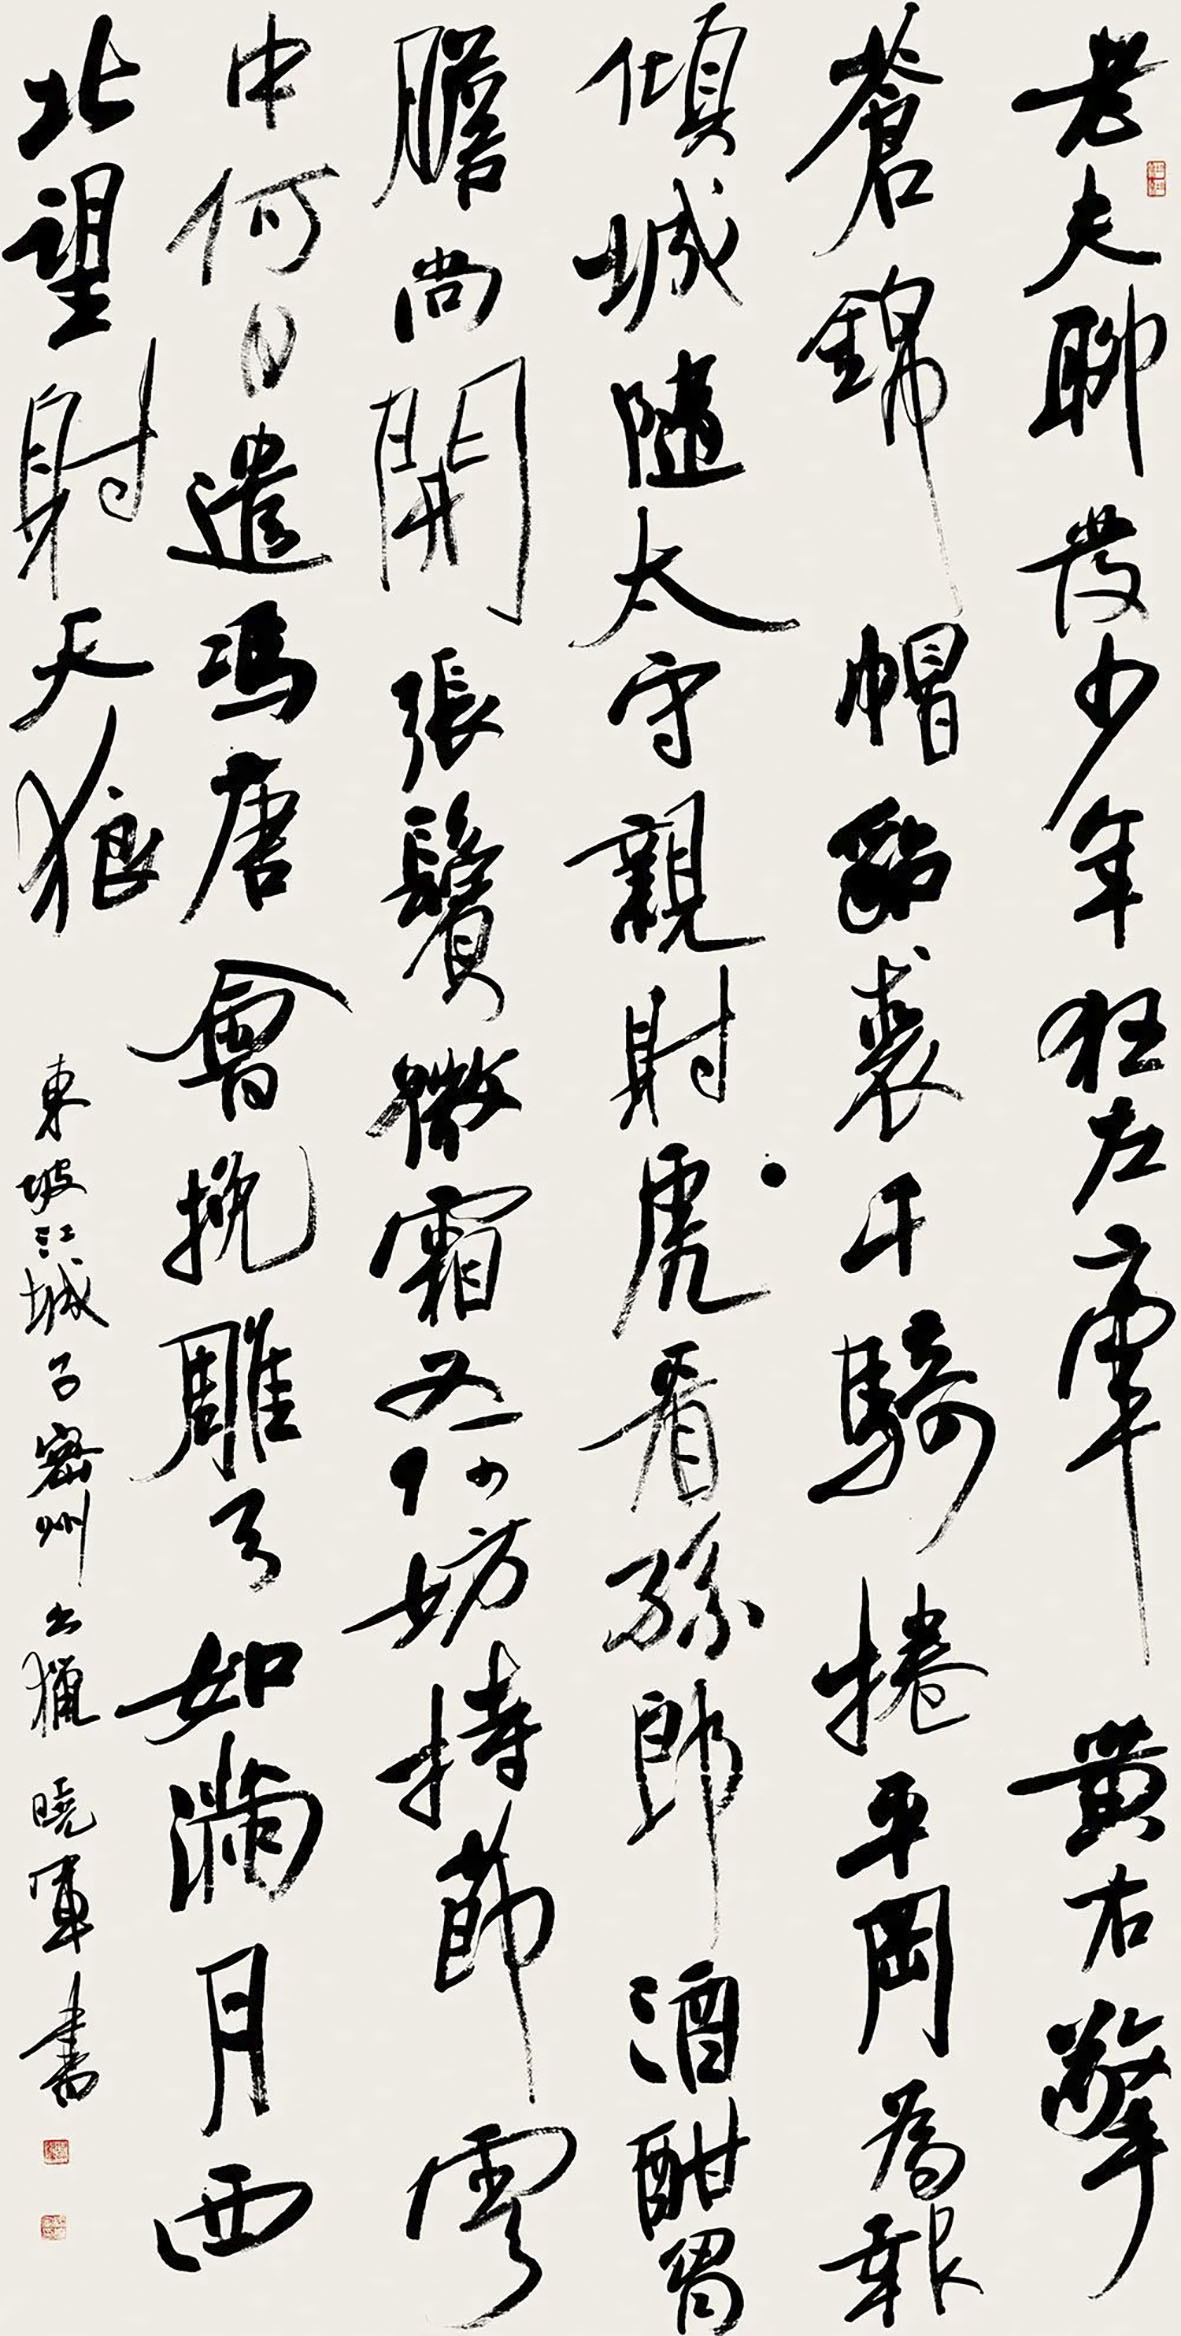 老夫聊發少年狂左牽黃右擎
蒼錦帽貂裘千騎捲平岡為報
傾城隨太守親射虎看孫郎酒酣胷
膽尚開張鬢微霜又何妨持節雲
中何日遣馮唐會挽雕弓如滿月西
北望射天狼
東坡江城子密州出獵 曉軍書